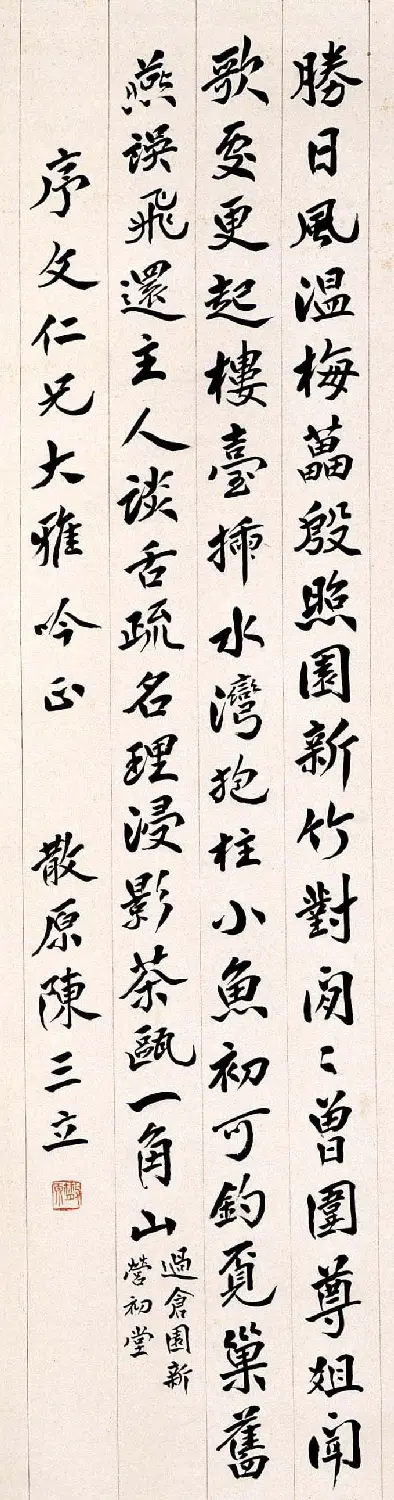 勝日風温梅藟殷照園新竹對閒〻曾圍尊俎聞
歌處更起樓臺插水灣抱柱小魚初可釣覓巢舊
燕誤飛還主人談舌疏名理浸影茶甌一角山
過倉園新
營初堂
序文仁兄大雅吟正 散原陳三立